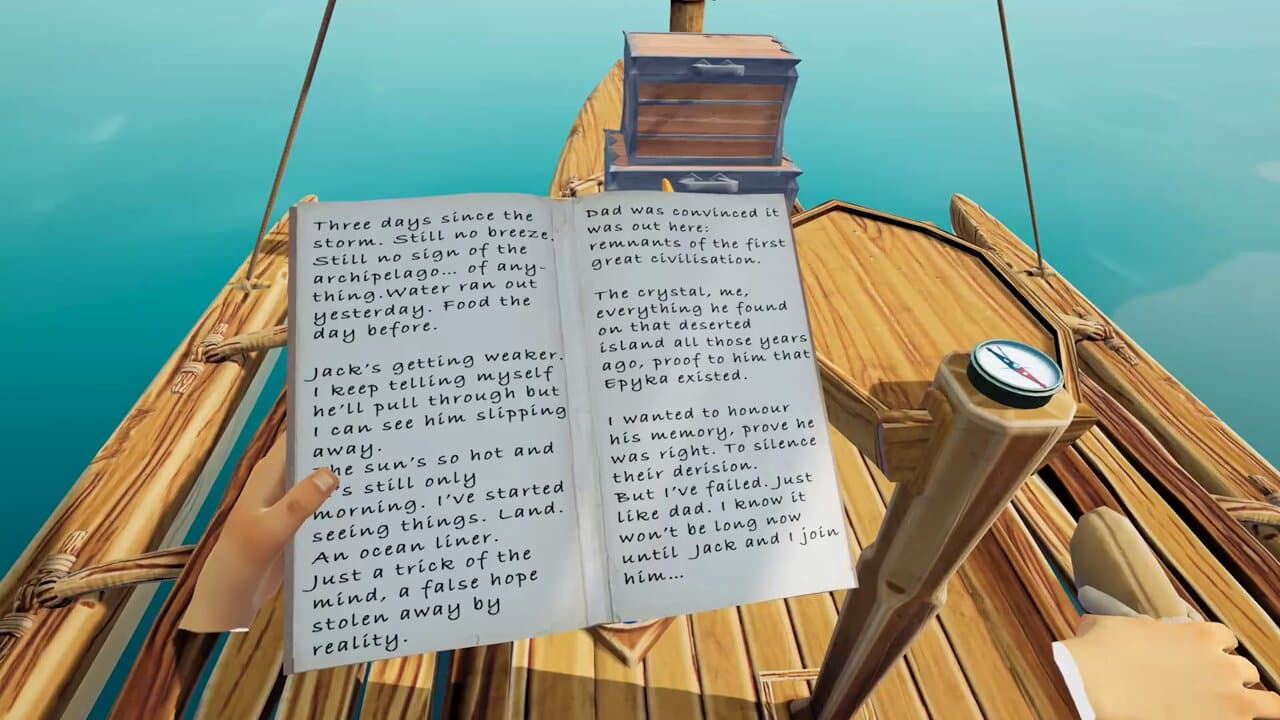 Three days since the
storm. Still no breeze.
Still no sign of the
archipelago... of any-
thing. Water ran out
yesterday. Food the
day before.
Jack's getting weaker.
I keep telling myself
he'll pull through but
I can see him slipping
away.
he sun's so hot and
's still only
morning. I've started
seeing things. Land.
An ocean liner.
Just a trick of the
mind, a false hope
stolen away by
reality.
Dad was convinced it
was out here:
remnants of the first
great civilisation.
The crystal, me,
everything he found
on that deserted
island all those years
ago, proof to him that
Epyka existed.
I wanted to honour
his memory, prove he
was right. To silence
their derision.
But I've failed. Just
like dad. I know it
won't be long now
until Jack and I join
him...